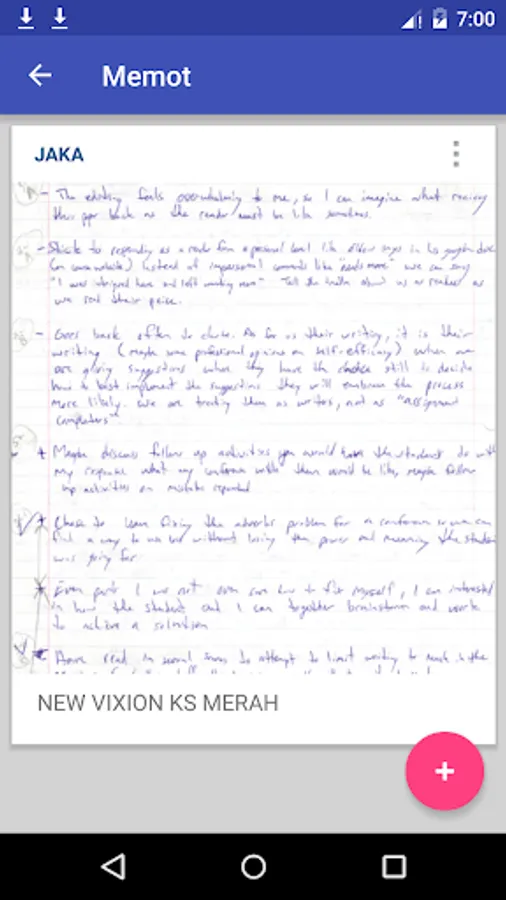 7:00
Memot
JAKA
- The editing feels overwhelming to me, so I can imagine what
this ppr back as the reader must be like sometimes.
- to responding as a reader from a personal level like says in his
(on some website) instead of impersonal comments like "needs more" we can say
"I was and left wanting more" Tell the truth about us as readers as
we read their
- Goes back often to choice. As far as their writing, it is their
writing (maybe some professional opinions on self-efficacy) when we
are giving suggestions when they have the choice still to decide
how to best implement the suggestions they will embrace the process
more likely. we are treating them as writers, not as "assignment
completers"
+ Maybe discuss follow up activities you would have the student do with
my response what my conference with them would be like, maybe follow
up activities on mistakes repeated
Chose to leave fixing the adverbs problem for a conference so we can
find a way to do so without losing the power and meaning the student
was going for
Even parts I was not even sure how to fix myself, I am interested
in how the student and I can together brainstorm and work
to achieve a solution
Have read in several to attempt to limit writing to much in the
NEW VIXION KS MERAH
+